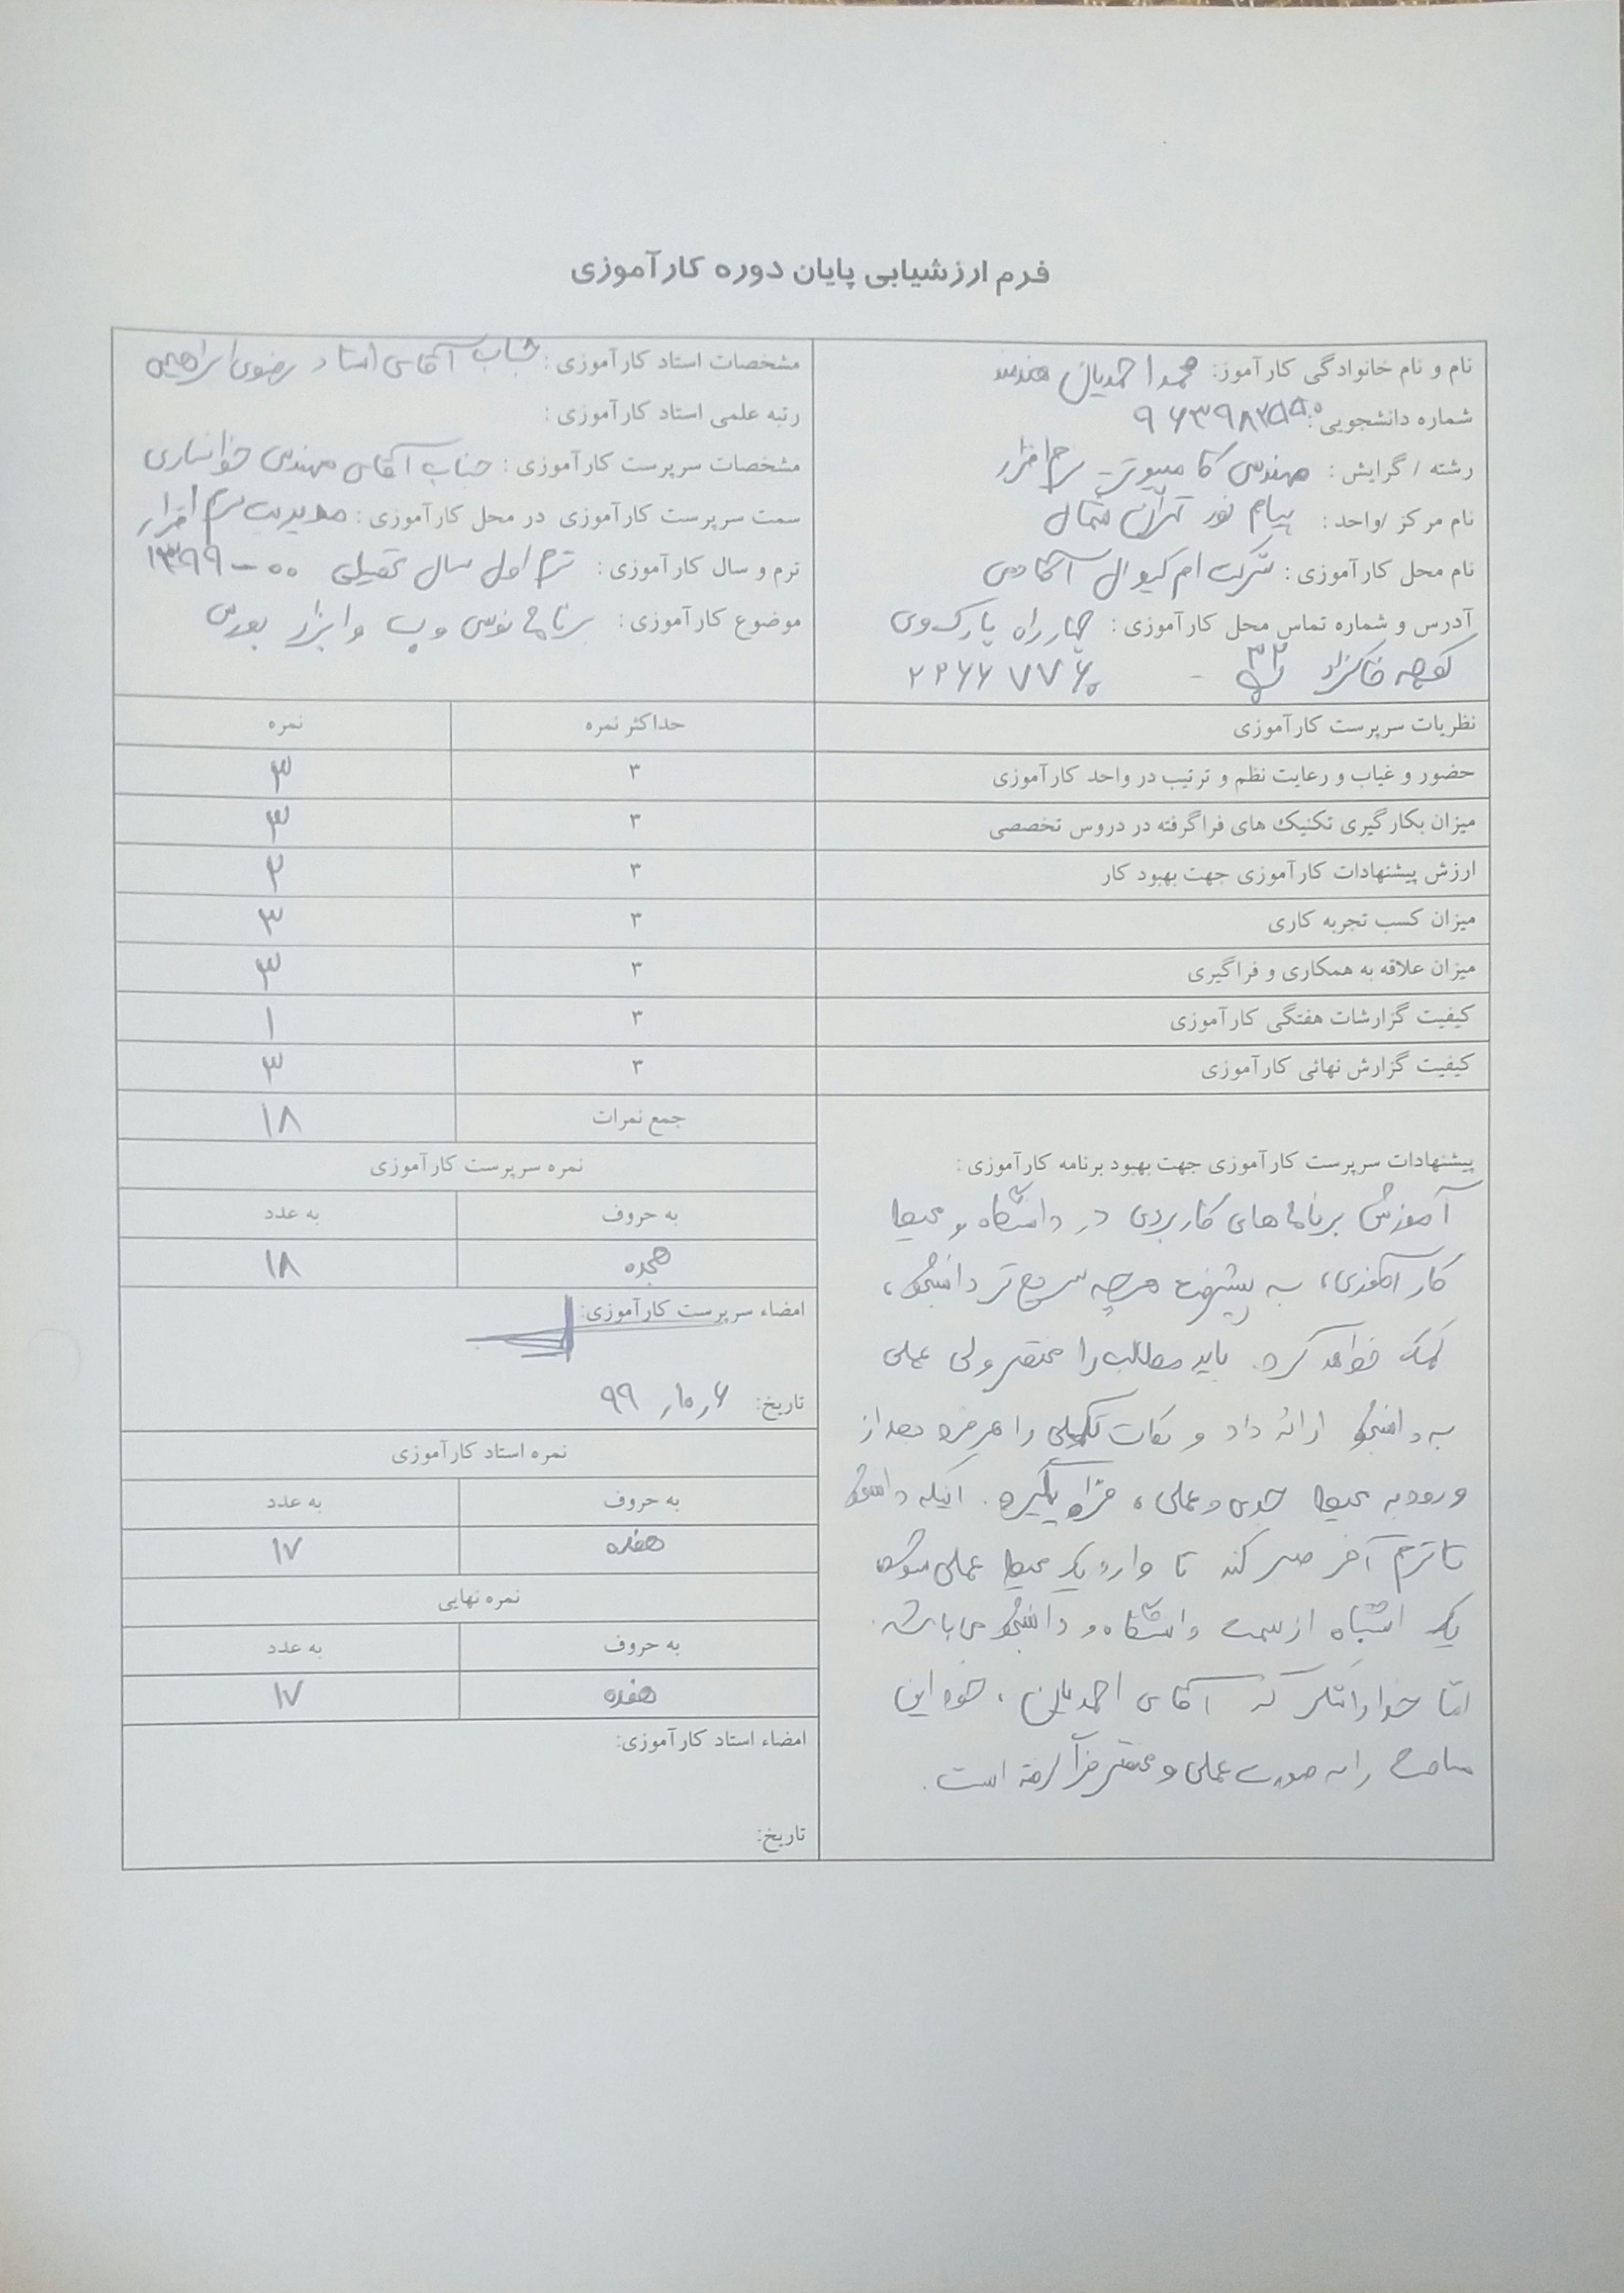 فرم ارزشیابی پایان دوره کارآموزی
نام و نام خانوادگی کارآموز: محمد احمدیان هنرمند
شماره دانشجویی:
رشته / گرایش: مهندسی کامپیوتر - نرم افزار
نام مرکز /واحد: پیام نور تهران شمال
نام محل کارآموزی: شرکت ام کیوال آکادمی
آدرس و شماره تماس محل کارآموزی: چهار راه پارک وی
کوچه خاکزاد - ۲۲۶۶۷۷۶۰
مشخصات استاد کارآموزی: جناب آقای استاد رضوی ابراهیمی
رتبه علمی استاد کارآموزی:
مشخصات سرپرست کارآموزی: جناب آقای مهندس خوانساری
سمت سرپرست کارآموزی در محل کارآموزی: مدیریت نرم افزار
ترم و سال کارآموزی: ترم اول سال تحصیلی ۰۰-۱۳۹۹
موضوع کارآموزی: برنامه نویسی وب و ابزار بورس
نظریات سرپرست کارآموزی حداکثر نمره نمره
حضور و غیاب و رعایت نظم و ترتیب در واحد کارآموزی ۳ ۳
میزان بکارگیری تکنیک های فراگرفته در دروس تخصصی ۳ ۳
ارزش پیشنهادات کارآموزی جهت بهبود کار ۳ ۲
میزان کسب تجربه کاری ۳ ۳
میزان علاقه به همکاری و فراگیری ۳ ۳
کیفیت گزارشات هفتگی کارآموزی ۳ ۱
کیفیت گزارش نهائی کارآموزی ۳ ۳
جمع نمرات ۱۸
پیشنهادات سرپرست کارآموزی جهت بهبود برنامه کارآموزی:
آموزش برنامه های کاربردی در دانشگاه و محیط
کارآموزی، به پیشرفت هرچه سریع تر دانشجو،
کمک خواهد کرد. باید مطالب را مختصر ولی عملی
به دانشجو ارائه داد و نکات تکمیلی را هر فرد بعد از
ورود به محیط جدی و عملی، فرا بگیرد. اینکه دانشجو
تا ترم آخر صبر کند تا وارد یک محیط عملی شود
یک اشتباه از سمت دانشگاه و دانشجو می باشد.
اما خدا را شکر که آقای احمدیان، خود این
مباحث را به صورت عملی و مختصر فرا گرفته است.
نمره سرپرست کارآموزی
به حروف به عدد
هجده ۱۸
امضاء سرپرست کارآموزی:
تاریخ: ۹۹،۱۰،۶
نمره استاد کارآموزی
به حروف به عدد
هفده ۱۷
نمره نهایی
به حروف به عدد
هفده ۱۷
امضاء استاد کارآموزی:
تاریخ: